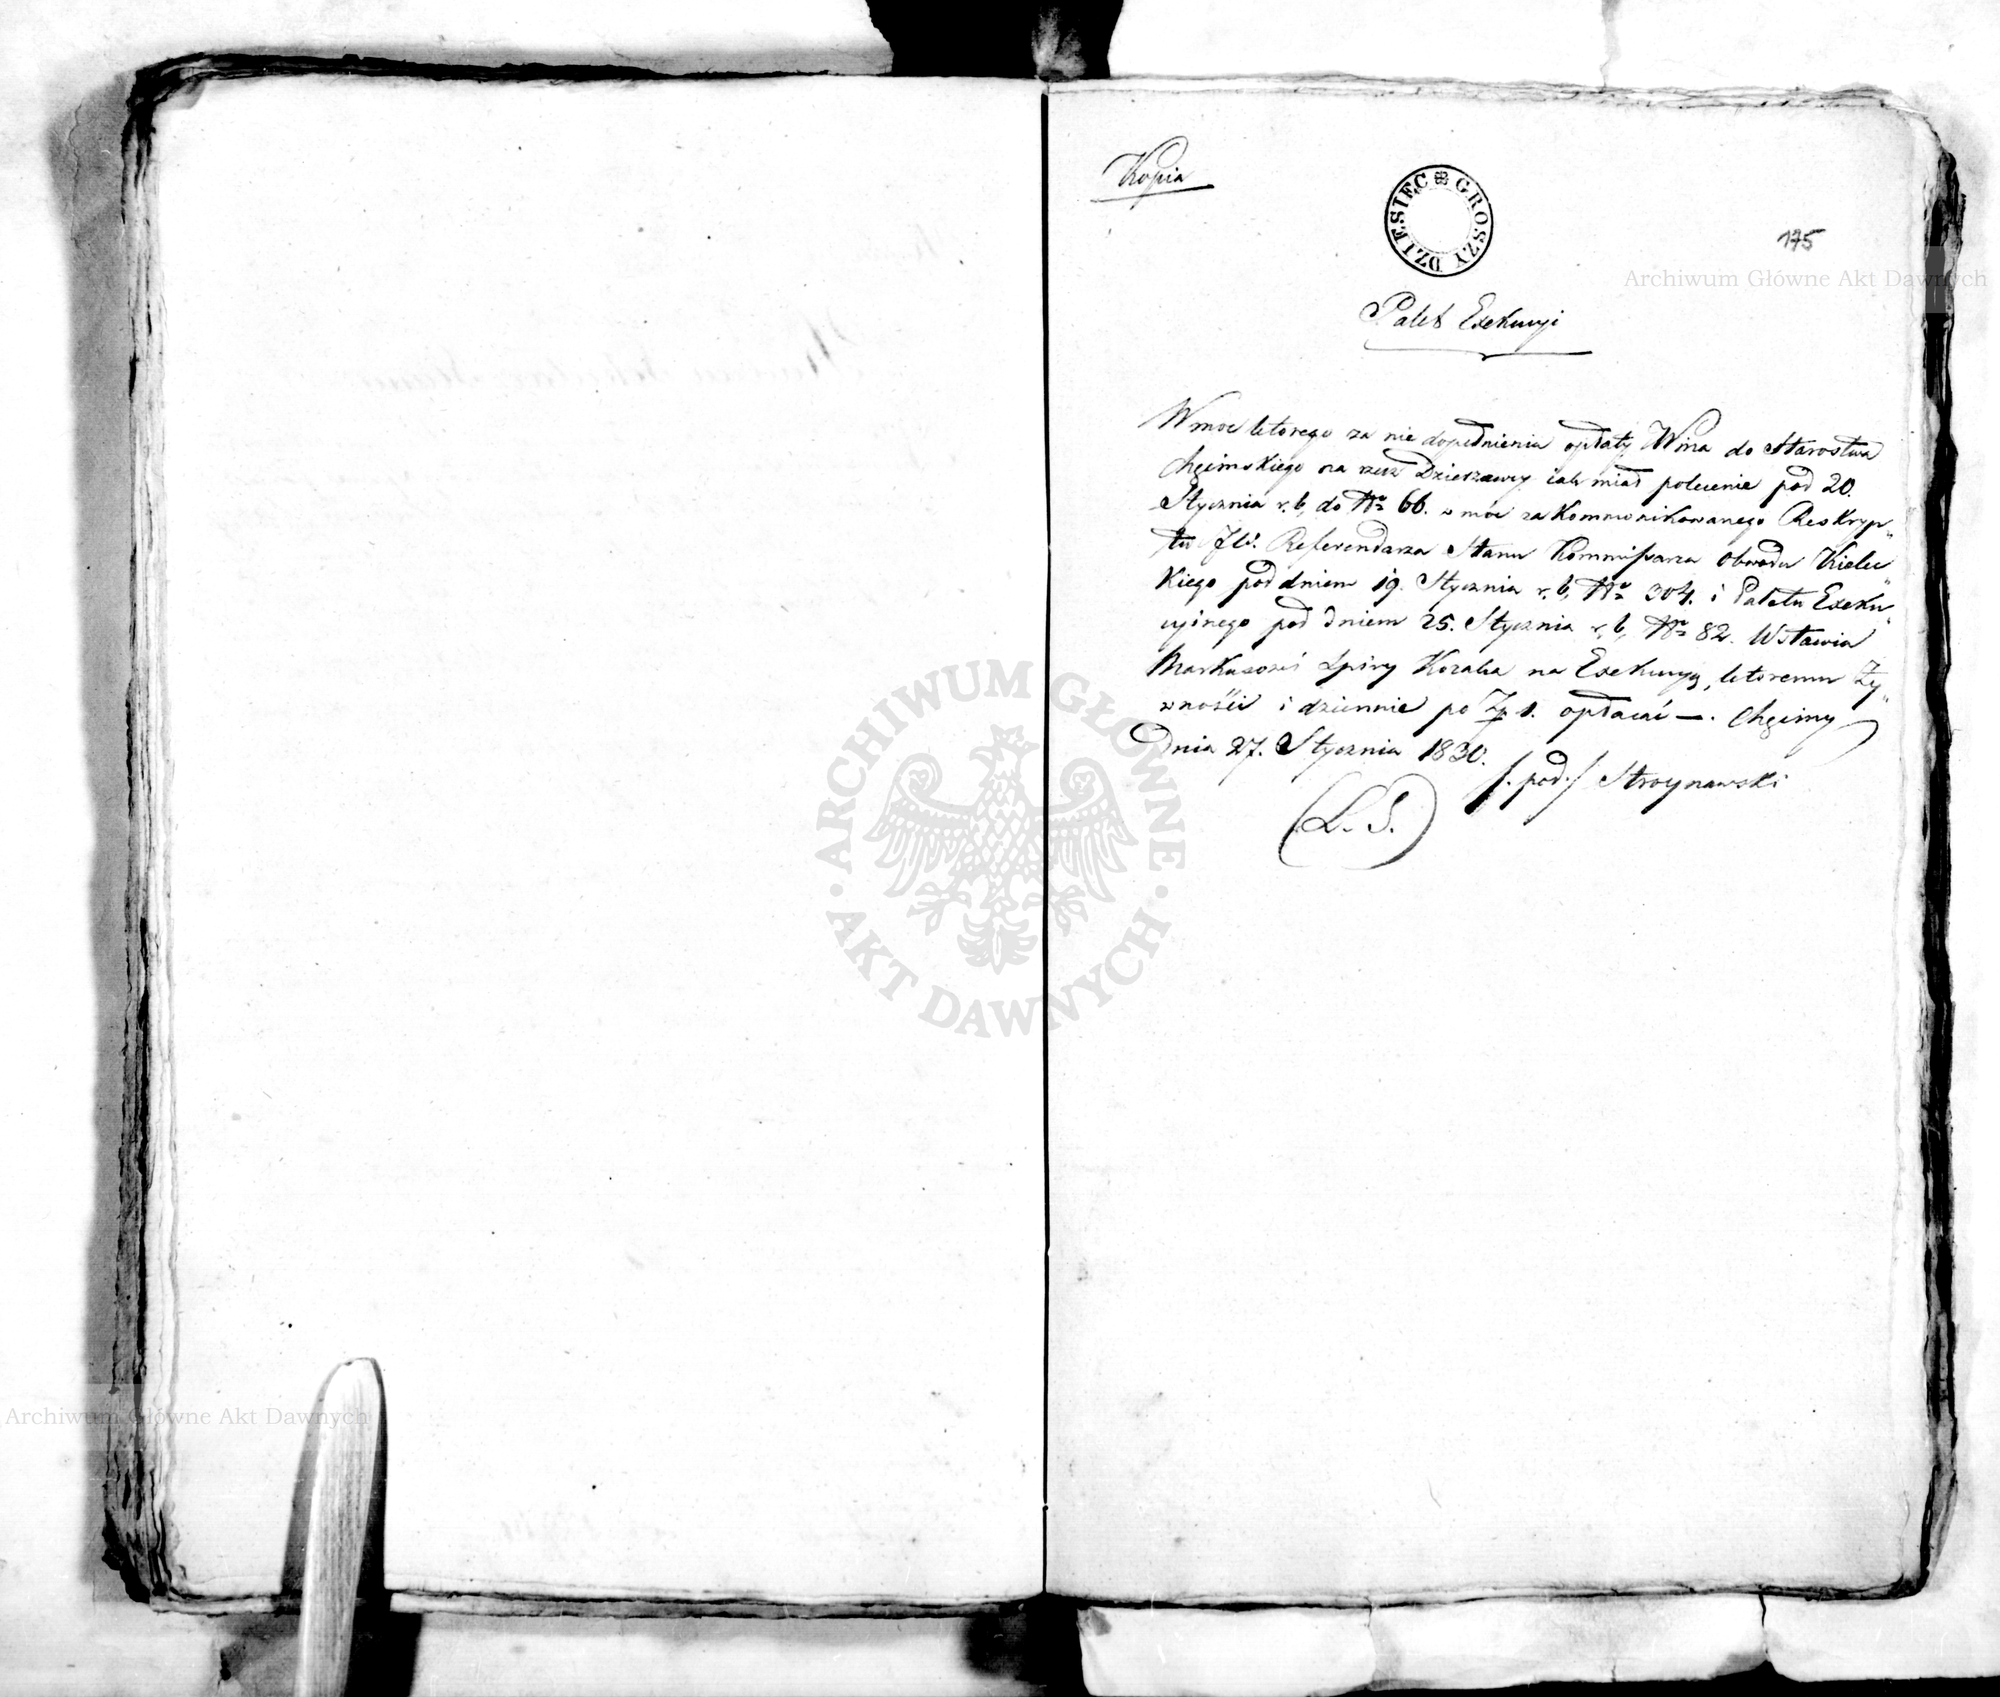 Kopia
GROSZY DZIESIĘC
175
Archiwum Główne Akt Dawnych
Palet Exekucyi
W moc ktorego za nie dopełnienia opłaty Wina do Starostwa
Chęcinskiego na rzecz Dzierzawcy miał polecenie pod 20.
Stycznia r. b. do No 66. w moc zakommunikowanego Reskryp„
tu JW. Referendarza Stanu Kommissarza Obwodu Kielec„
kiego pod dniem 19. Stycznia r. b. No 304. i Paletu Exeku„
cyinego pod dniem 25. Stycznia r. b. No 82. Wstawia
Spiry Kozaka na Exekucyą, ktoremu Ży„
wności i dziennie po Zp 1. opłacać —. Chęciny
Dnia 27. Stycznia 1830.
/. pod:/ Stroynawski
(L. S.)
ARCHIWUM GŁÓWNE
AKT DAWNYCH
Archiwum Główne Akt Dawnych